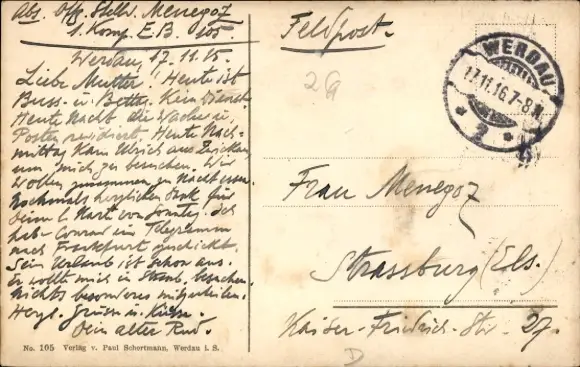 Abs. Offz. Stellv. Menegoz
1. Komp. E.B. 105.
Werdau, 17.11.15.
Liebe Mutter! Heute ist
Buss- u. Bettag. Kein Dienst.
Heute Nacht die Wachen u.
Posten revidiert. Heute Nach-
mittag kam Ulrich aus Zwickau
um mich zu besuchen. Wir
wollen zusammen zu Nacht essen.
Nochmals herzlichen Dank für
Deine l. Karte von Sonntag. Ich
habe Conrad ein Telegramm
nach Frankfurt geschickt.
Sein Urlaub ist schon aus.
Er wollte mich in Strassb. besuchen.
Nichts besonderes mitzuteilen.
Herzl. Grüsse u. Küsse.
Dein alter Rud.
No. 105 Verlag v. Paul Schortmann, Werdau i. S.
Feldpost.
2G
WERDAU
17.11.16. 7-8 N.
* 2 *
Frau Menegoz
Strassburg (Els.)
Kaiser-Friedrich-Str. 27.
D